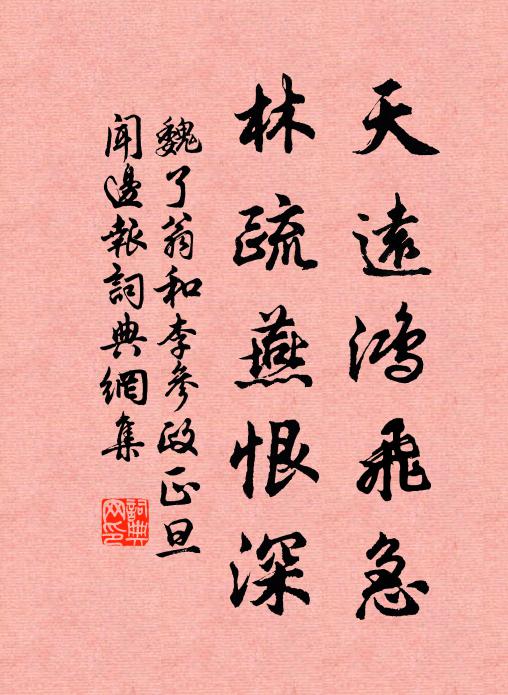 天遠鴻飛急
林疏燕恨深
魏了翁和李參政正旦
聞邊報詞典網集
詞典网印